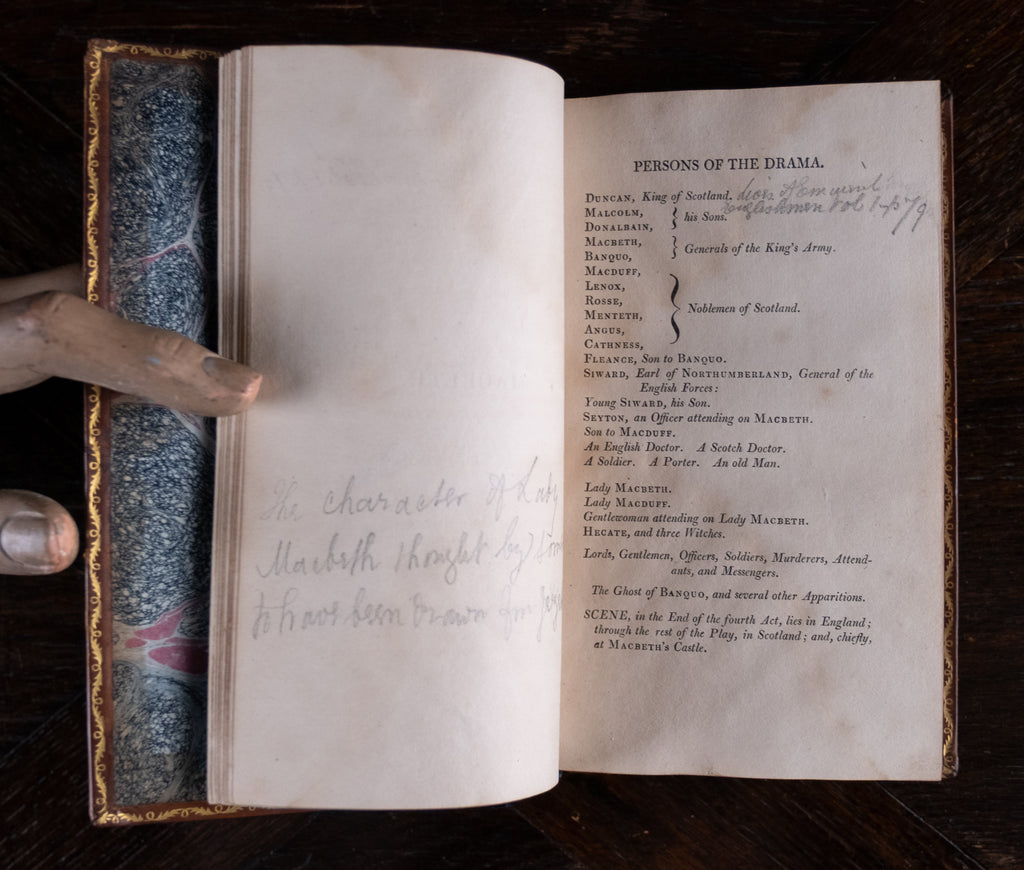 The character of Lady
Macbeth thought by some
to have been drawn from
PERSONS OF THE DRAMA.
DUNCAN, King of Scotland.
Englishmen Vol 1 p 79
MALCOLM,
DONALBAIN,
} his Sons.
MACBETH,
BANQUO,
} Generals of the King's Army.
MACDUFF,
LENOX,
ROSSE,
MENTETH,
ANGUS,
CATHNESS,
} Noblemen of Scotland.
FLEANCE, Son to BANQUO.
SIWARD, Earl of NORTHUMBERLAND, General of the
English Forces:
Young SIWARD, his Son.
SEYTON, an Officer attending on MACBETH.
Son to MACDUFF.
An English Doctor. A Scotch Doctor.
A Soldier. A Porter. An old Man.
Lady MACBETH.
Lady MACDUFF.
Gentlewoman attending on Lady MACBETH.
HECATE, and three Witches.
Lords, Gentlemen, Officers, Soldiers, Murderers, Attend-
ants, and Messengers.
The Ghost of BANQUO, and several other Apparitions.
SCENE, in the End of the fourth Act, lies in England;
through the rest of the Play, in Scotland; and, chiefly,
at MACBETH's Castle.